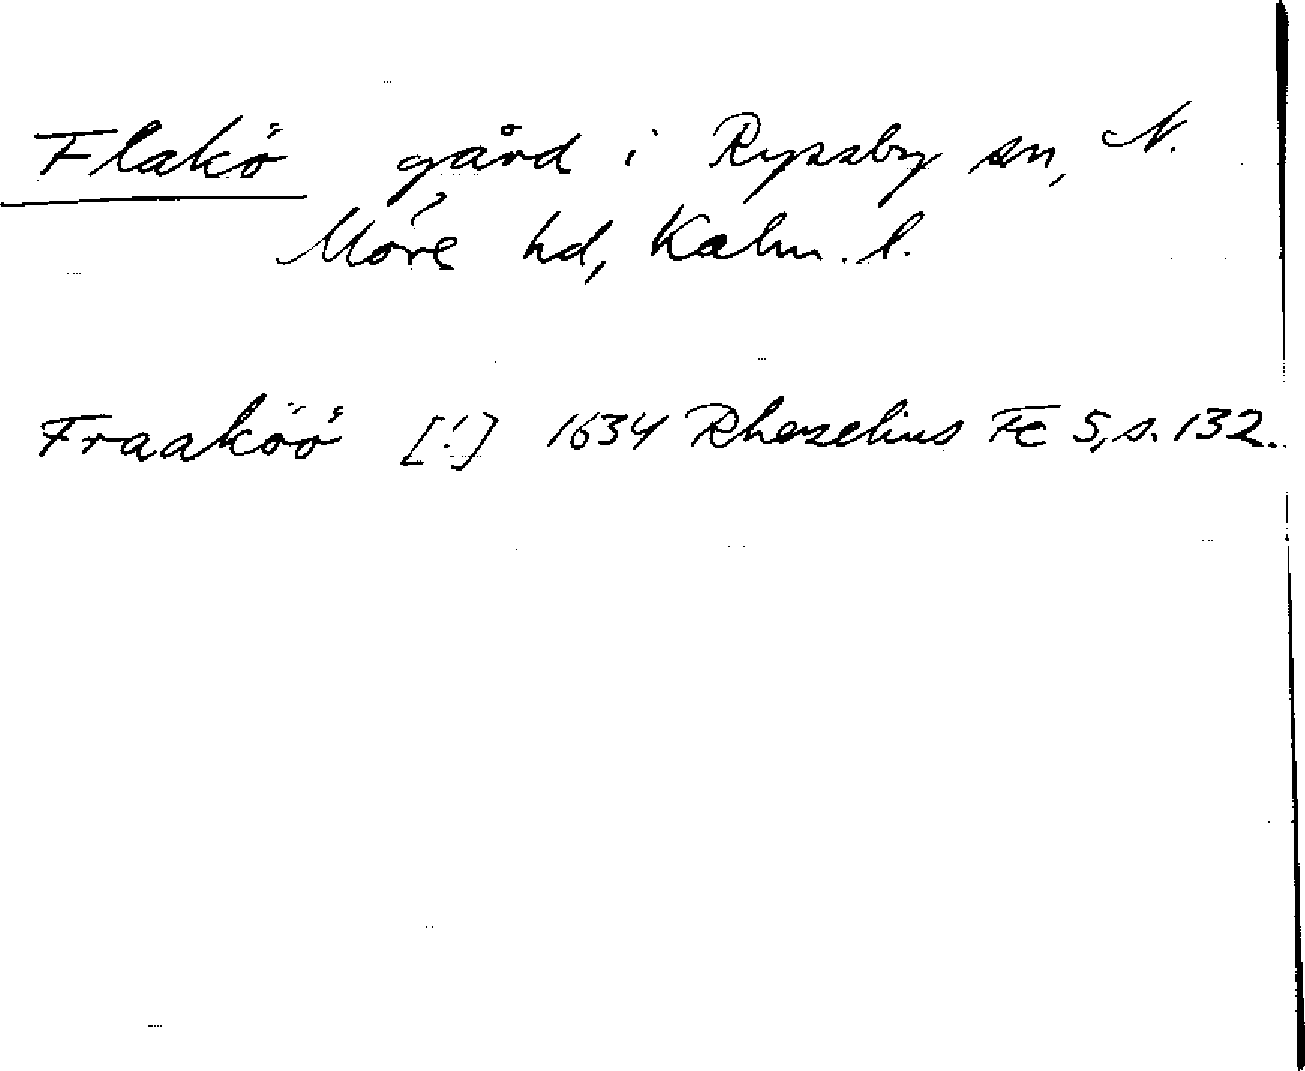 Flakö gård i Ryssby sn, N.
Möre hd, Kalm. l.
Fraaköö [!] 1634 Rhezelius Fc 5, s. 132.